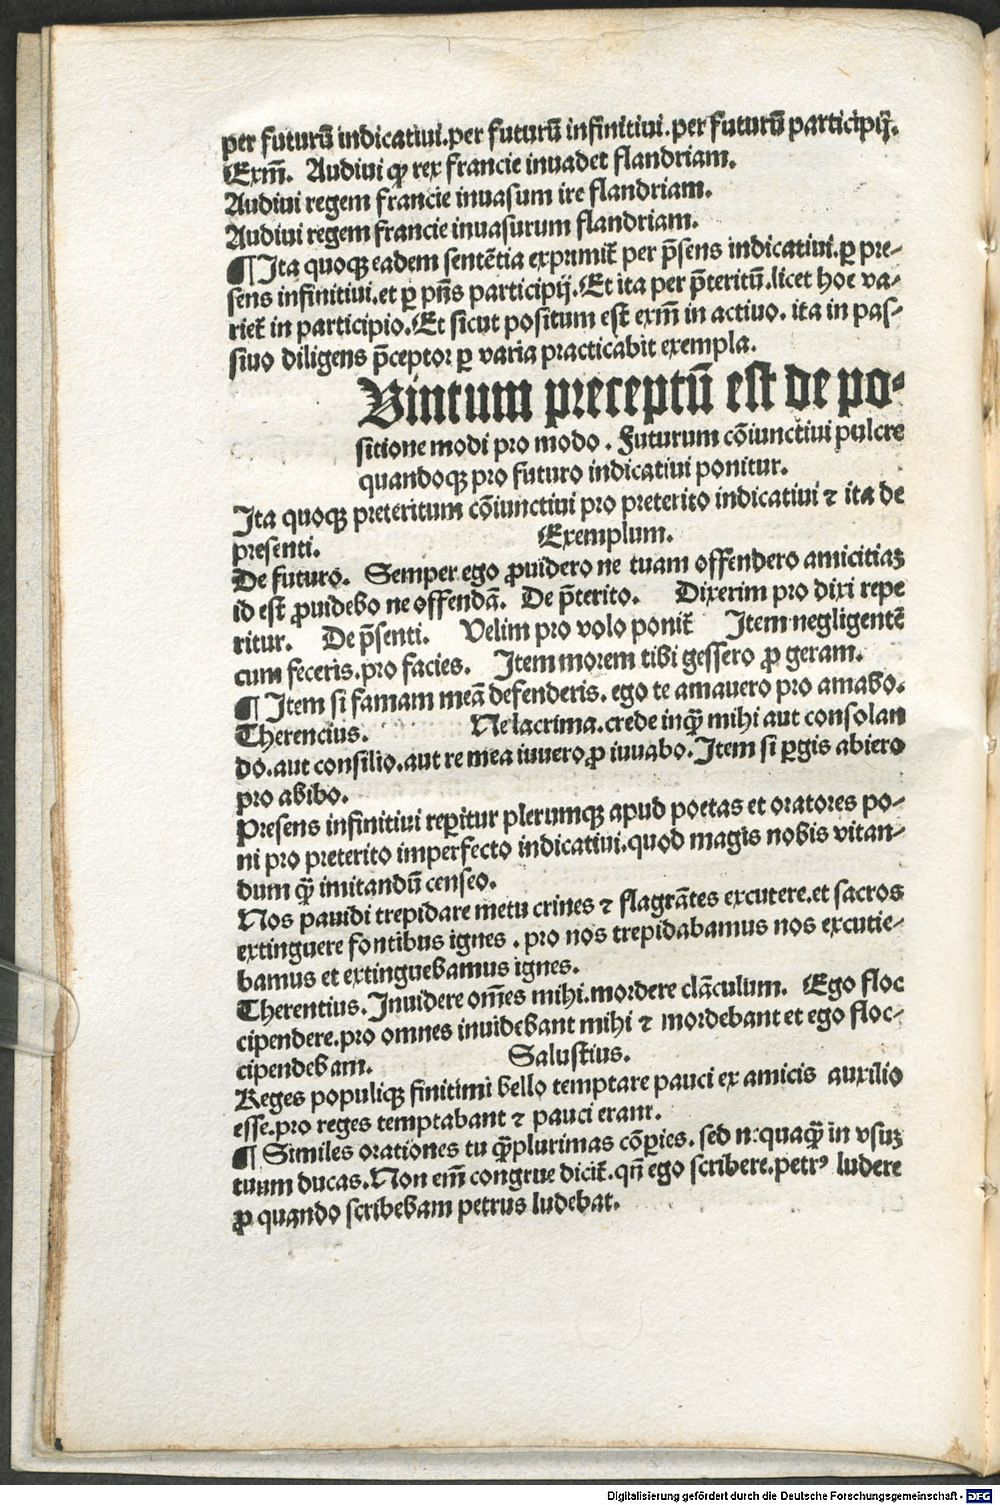 per futurū indicatiui.per futurū infinitiui.per futurū participij.
Exm̄. Audiui qꝫ rex francie inuadet flandriam.
Audiui regem francie inuasum ire flandriam.
Audiui regem francie inuasurum flandriam.
¶ Ita quoqꝫ eadem sentētia exprimit᷑ per p̄sens indicatiui.ꝑ pre⸗
sens infinitiui.et ꝑ pn̄s participij.Et ita per p̄teritū.licet hoc va⸗
riet᷑ in participio.Et sicut positum est exm̄ in actiuo. ita in pas⸗
siuo diligens p̄ceptor ꝑ varia practicabit exempla.
Uintum preceptū est de po⸗
sitione modi pro modo. Futurum cōiunctiui pulcre
quandoqꝫ pro futuro indicatiui ponitur.
Ita quoqꝫ preteritum cōiunctiui pro preterito indicatiui ⁊ ita de
presenti. Exemplum.
De futuro. Semper ego ꝓuidero ne tuam offendero amicitiaꝫ
id est ꝓuidebo ne offendā. De p̄terito. Dixerim pro dixi repe
ritur. De p̄senti. Velim pro volo ponit᷑ Item negligentē
cum feceris.pro facies. Item morem tibi gessero ꝓ geram.
¶ Item si famam meā defenderis. ego te amauero pro amabo.
Therencius. Ne lacrima.crede inqꝫ̄ mihi aut consolan
do.aut consilio.aut re mea iuuero ꝓ iuuabo.Item si ꝑgis abiero
pro abibo.
Presens infinitiui reꝑitur plerumqꝫ apud poetas et oratores po⸗
ni pro preterito imperfecto indicatiui.quod magis nobis vitan⸗
dum qꝫ̄ imitandū censeo.
Nos pauidi trepidare metu crines ⁊ flagrātes excutere.et sacros
extinguere fontibus ignes . pro nos trepidabamus nos excutie⸗
bamus et extinguebamus ignes.
Therentius. Inuidere om̄es mihi.mordere clāculum. Ego floc
cipendere.pro omnes inuidebant mihi ⁊ mordebant et ego floc⸗
cipendebam. Salustius.
Reges populiqꝫ finitimi bello temptare pauci ex amicis auxilio
esse.pro reges temptabant ⁊ pauci erant.
¶ Similes orationes tu qꝫ̄plurimas cōꝑies. sed nequaqꝫ̄ in vsuꝫ
tuum ducas.Non em̄ congrue dicit᷑.qn̄ ego scribere.petrꝰ ludere
ꝓ quando scribebam petrus ludebat.
Digitalisierung gefördert durch die Deutsche Forschungsgemeinschaft - DFG